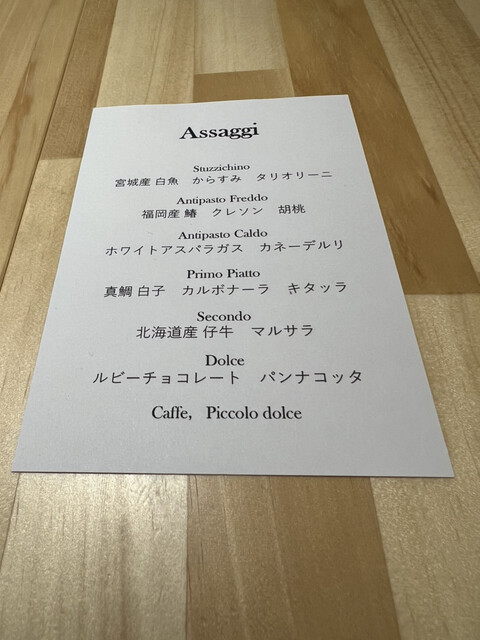 Assaggi
Stuzzichino
宮城産 白魚　からすみ　タリオリーニ
Antipasto Freddo
福岡産 鰆　クレソン　胡桃
Antipasto Caldo
ホワイトアスパラガス　カネーデルリ
Primo Piatto
真鯛 白子　カルボナーラ　キタッラ
Secondo
北海道産 仔牛　マルサラ
Dolce
ルビーチョコレート　パンナコッタ
Caffe,　Piccolo dolce